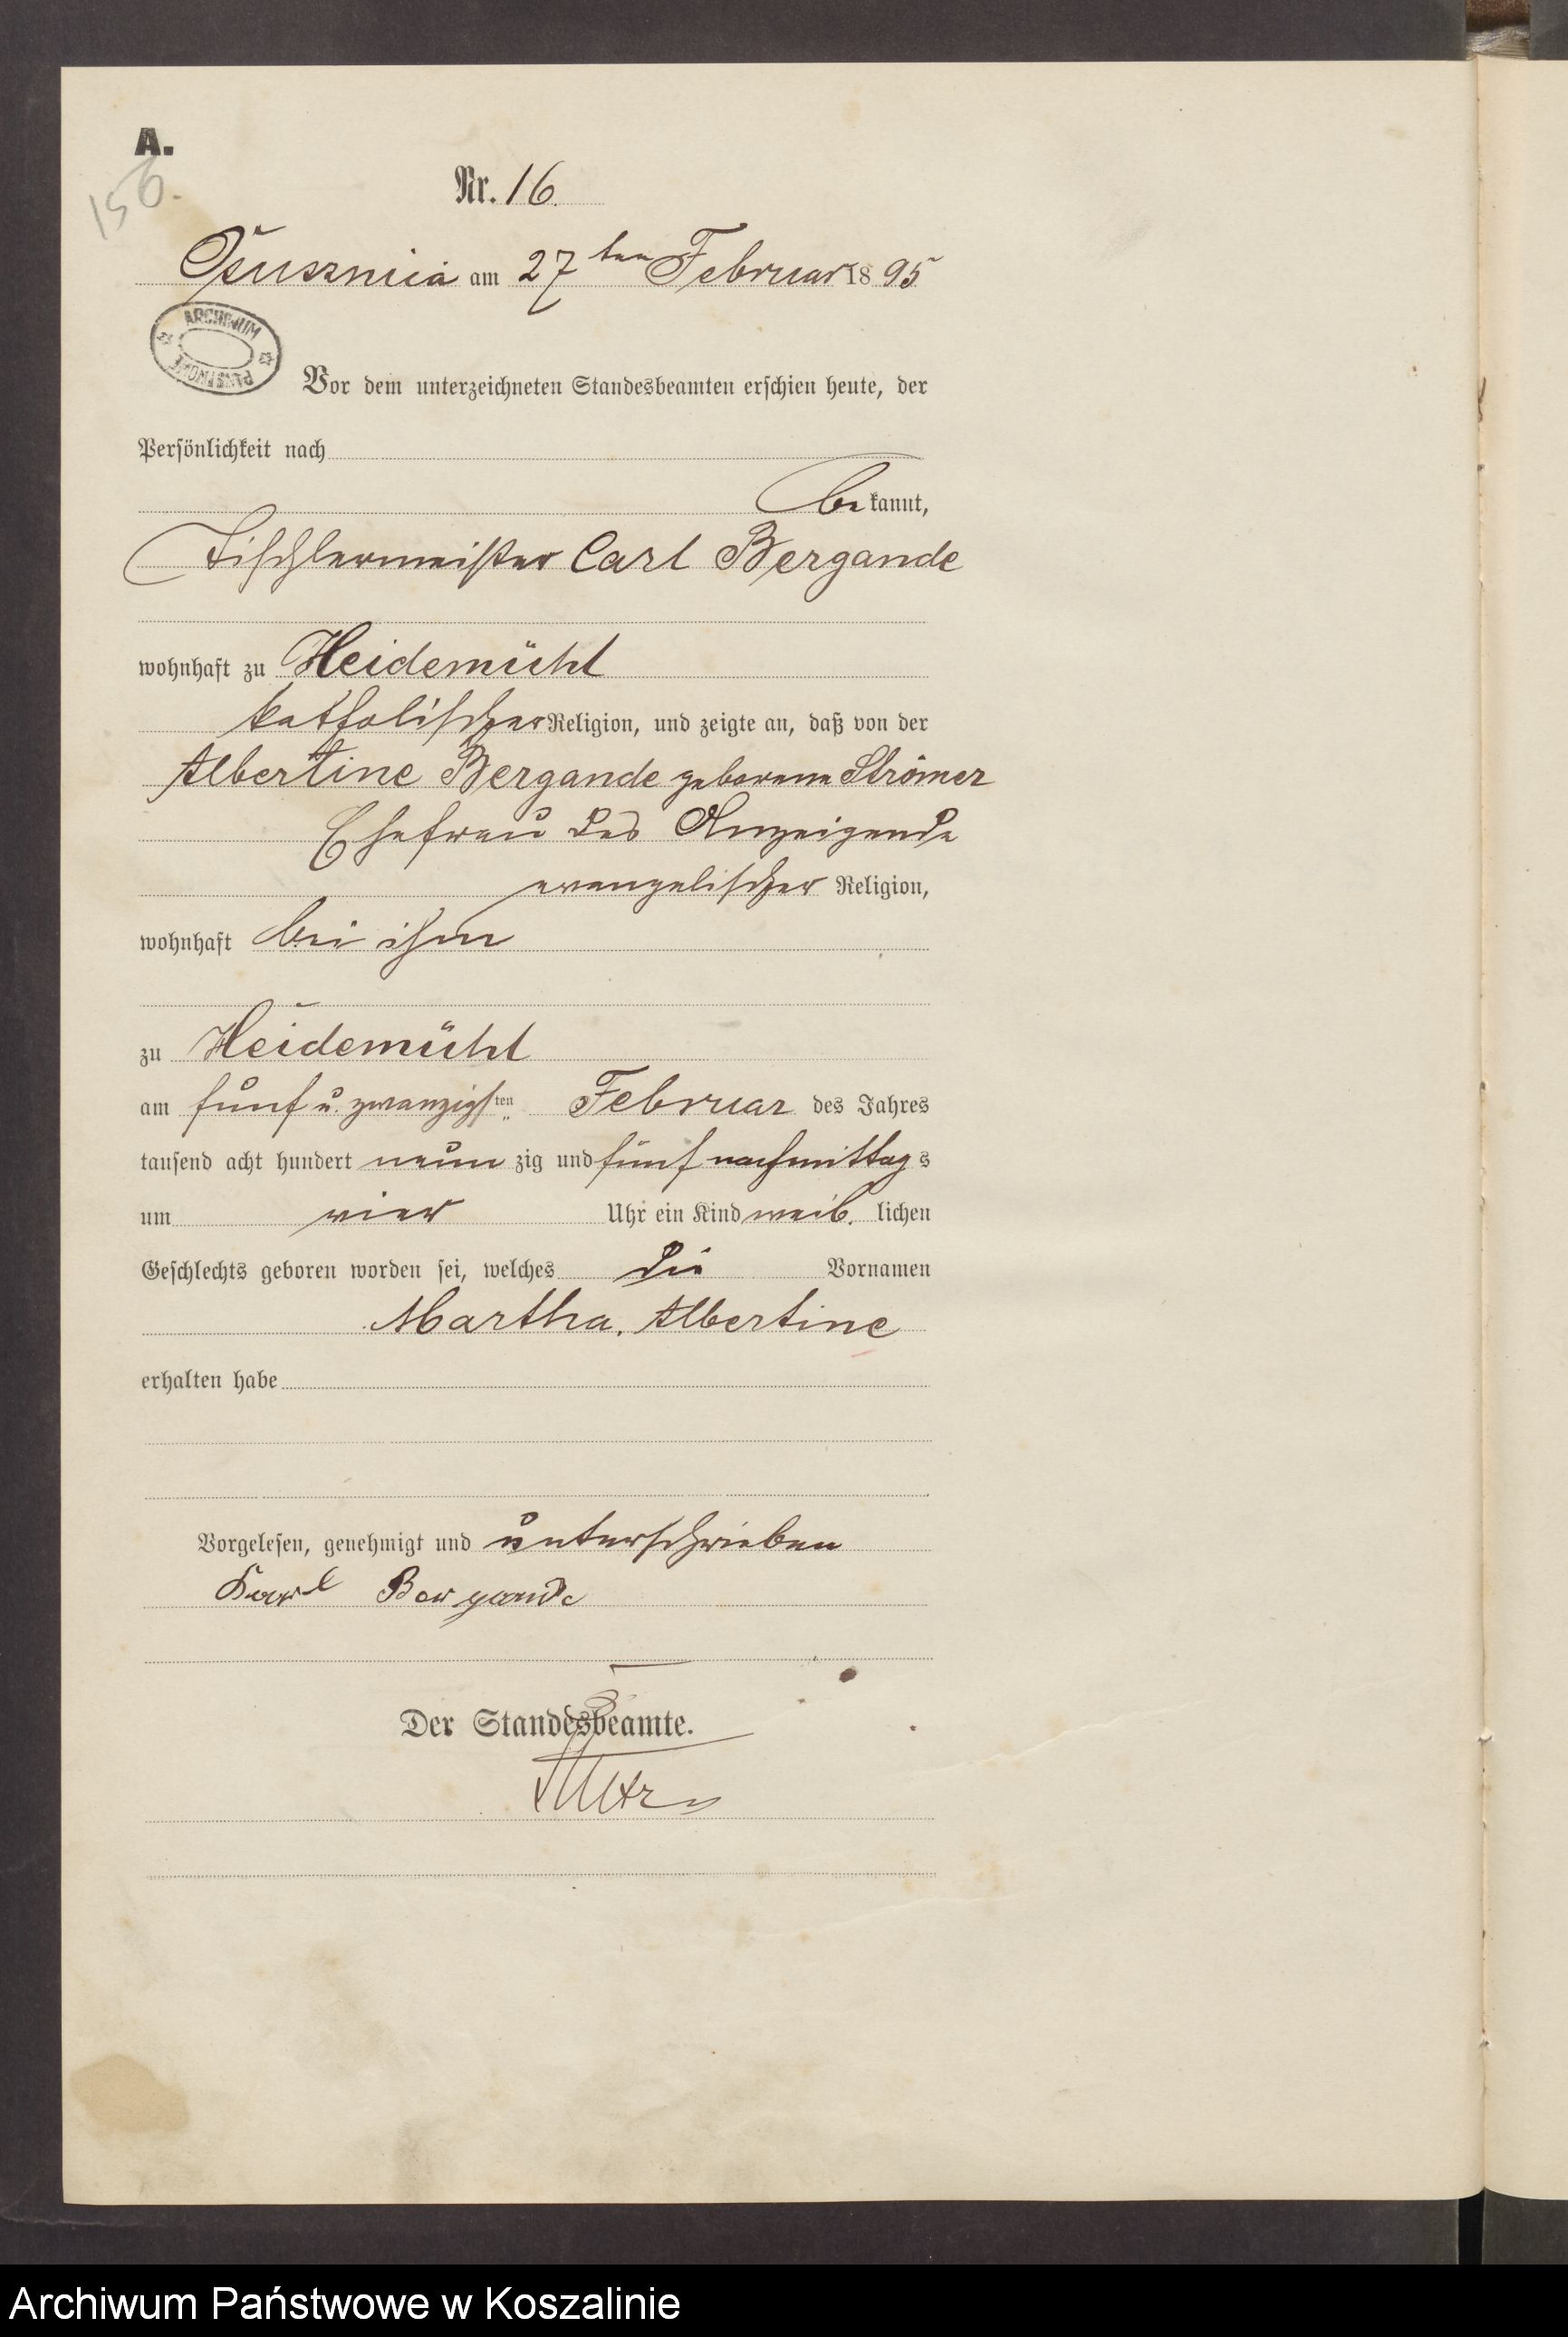 A.
156.
Nr. 16.
am 27ten Februar 1895
ARCHIWUM
PAŃSTWOWE
Vor dem unterzeichneten Standesbeamten erschien heute, der
Persönlichkeit nach
bekannt,
Tischlermeister Carl Bergande
wohnhaft zu Heidemühl
katholischer Religion, und zeigte an, daß von der
Albertine Bergande geborene Strömer
Ehefrau des Anzeigende
evangelischer Religion,
wohnhaft bei ihm
zu Heidemühl
am fünf u. zwanzigsten Februar des Jahres
tausend acht hundert neun zig und fünf nachmittags
um vier Uhr ein Kind weib. lichen
Geschlechts geboren worden sei, welches die Vornamen
Martha. Albertine
erhalten habe
Vorgelesen, genehmigt und unterschrieben
Karl Bergande
Der Standesbeamte.
Archiwum Państwowe w Koszalinie